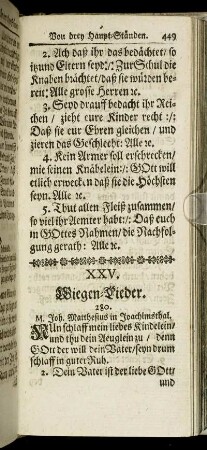 Von drey Haupt-Ständen. 449
2. Ach daß ihr das bedächtet/ so
ihr und Eltern seyd/: Zur Schul die
Knaben brächtet/ daß sie würden be-
reit: Alle grosse Herren ꝛc.
3. Seyd drauff bedacht ihr Rei-
chen / zieht eure Kinder recht :/:
Daß sie eur Ehren gleichen / und
zieren das Geschlecht: Alle ꝛc.
4. Kein Armer soll erschrecken/
mie seinen Knäbelein:/: GOtt will
etlich erwecken daß sie die Höchsten
seyn. Alle ꝛc.
5. Thut allen Fleiß zusammen/
so viel ihr Aemter habt:/: Daß euch
in GOttes Nahmen/ die Nachfol-
gung gerath: Alle ꝛc.
XXV.
Wiegen-Lieder.
280.
M. Joh. Matthesius in Joachimsthal.
NUn schlaff mein liebes Kindelein/
und thu dein Aeuglein zu / denn
GOtt der will dein Vater/ seyn drum
schlaff in guter Ruh.
2. Dein Vater ist der liebe GOtt/
und